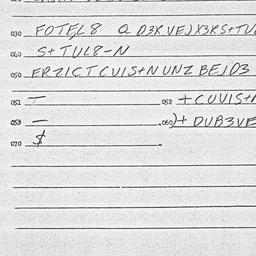 030 FOTEL8 a D3XVEJX3RS+TU
040 S+TUL8-N
050 ERZICTCUIS+NUNZBEJD3
051 — 052 +CUUIS+
053 — 060)+DUB3VE
070 $